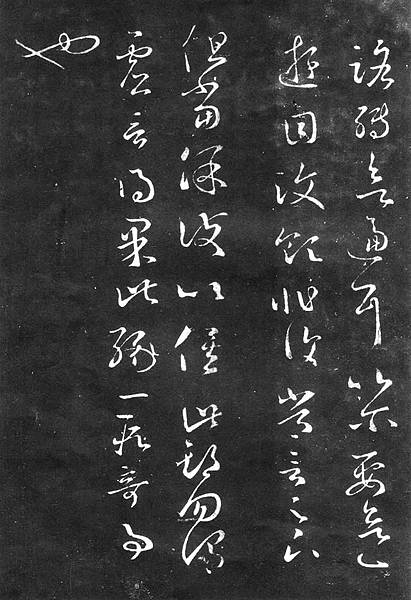 路轉欲逼耳以爾要欲一
遊目汶領非復常言足下
但當保護以俟此期勿謂
虛言得果此緣一段奇事
也